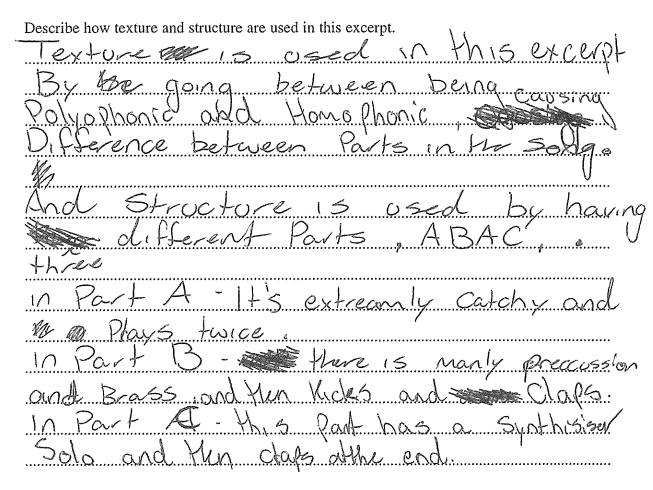 Describe how texture and structure are used in this excerpt.
Texture is used in this excerpt
By going between being
Polyophonic abd Homophonic, causing
Difference between Parts in the Song.
And Structure is used by having
different Parts, ABAC,.
three
in Part A - It's extreamly Catchy and
Plays twice.
In Part B - there is manly preccussion
and Brass and then Kicks and Claps.
In Part C - this Part has a Synthisiser
Solo and then claps at the end.